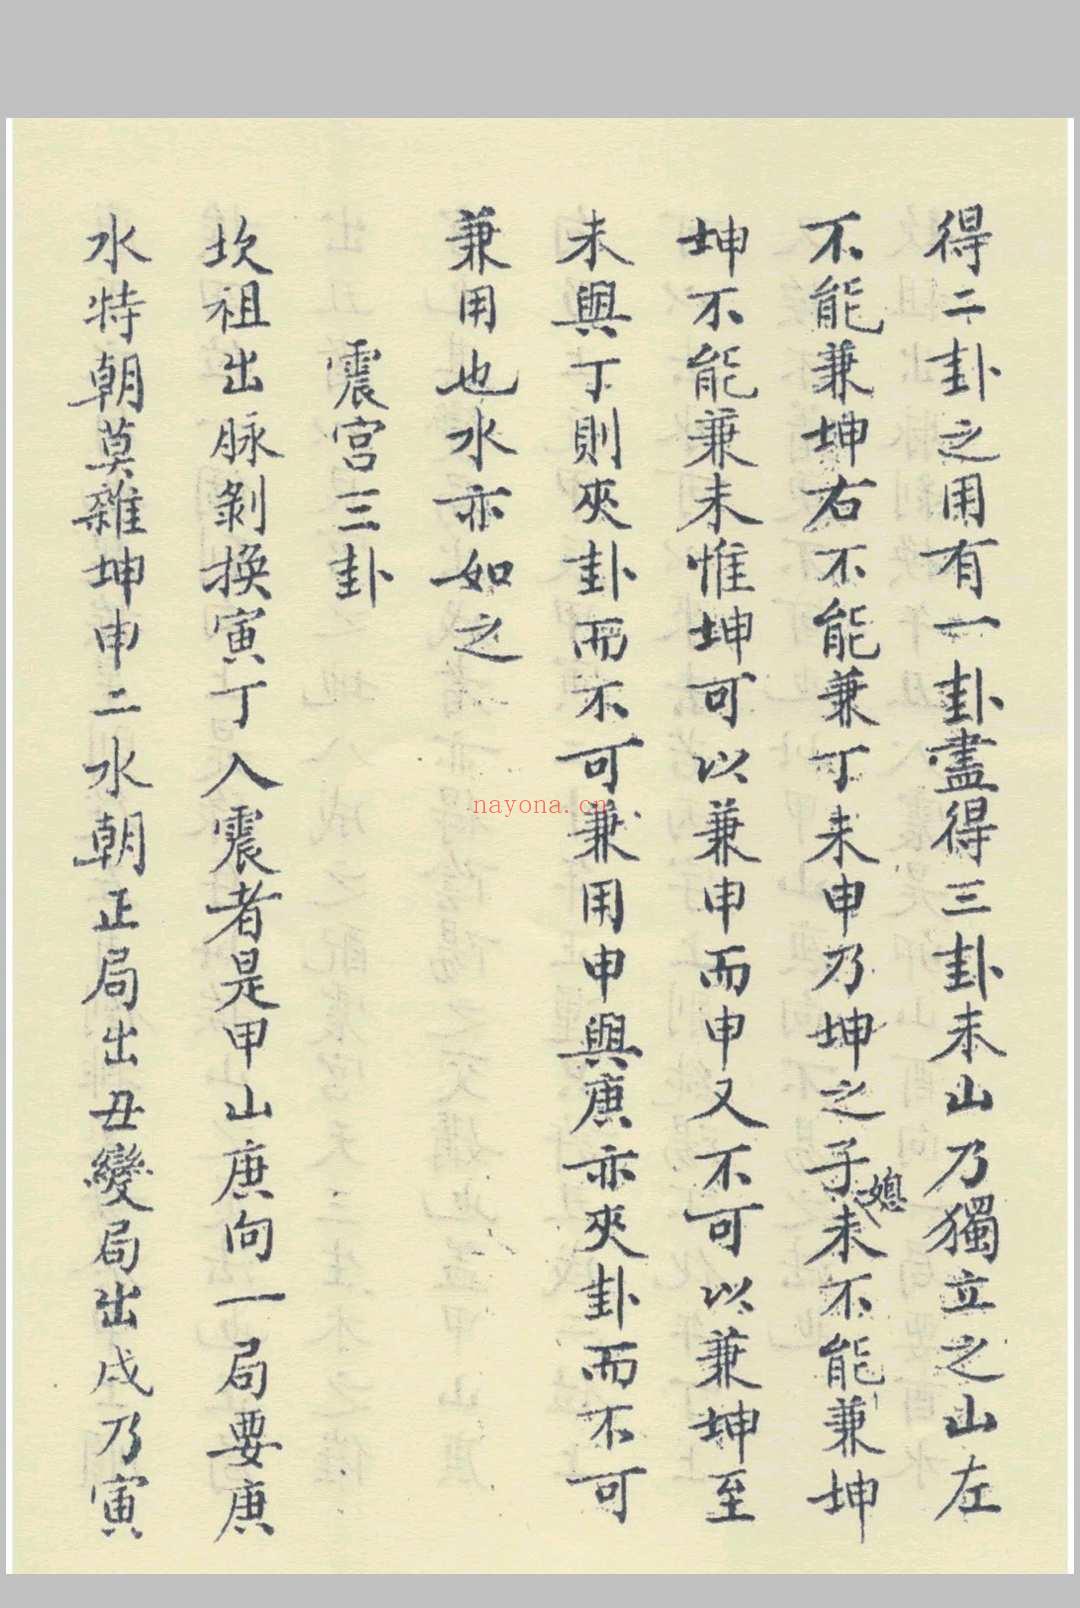 得二卦之用有一卦盡得三卦未山乃獨立之山左
不能兼坤右不能兼丁未申乃坤之子媳未不能兼坤
坤不能兼未惟坤可以兼申而申又不可以兼坤至
未與丁則夾卦而不可兼用申與庚亦夾卦而不可
兼用也水亦如之
震宮三卦
坎祖出脉剝換寅丁入震者是甲山庚向一局要庚
水特朝莫雜坤申二水朝正局出丑變局出戌乃寅
nayona.cn